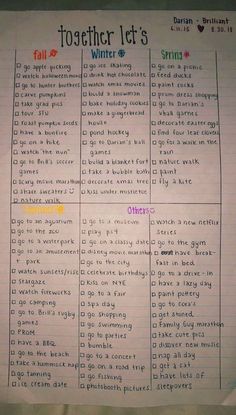 Darian - Brilliant
6.11.15 ♥ 8.30.15
together let's
fall
go apple picking
watch halloween movies
go to hunter brothers
carve pumpkins
take grad pics
tour SLU
roast pumpkin seeds
have a bonfire
go on a hike
watch "the nun"
go to Brill's soccer
games
scary movie marathon
share sweaters
nature walk
Winter
go ice skating
drink hot chocolate
watch xmas movies
build a snowman
bake holiday cookies
make a gingerbread
house
pond hockey
go to Darian's ball
games
build a blanket fort
take a bubble bath
decorate xmas tree
kiss under mistletoe
Spring
go on a picnic
feed ducks
paint rocks
dress shopping
go to Darian's
vball games
decorate easter eggs
find four leaf clovers
go for a walk in the
rain
nature walk
paint
fly a kite
go to an aquarium
go to the zoo
go to a waterpark
go to an amusement
park
watch sunsets/rises
stargaze
watch fireworks
go camping
go to Brill's rugby
games
PROM
have a BBQ
go to the beach
take a hammock nap
go tanning
ice cream date
Others
go to a museum
play ps4
go on a classy date
disney movie marathon
go to the city
celebrate birthdays
kiss on NYE
go to a fair
go shopping
go swimming
go to parties
bumble
go to a concert
go on a road trip
go fishing
photobooth pictures
watch a new netflix
series
go to the gym
have break-
fast in bed
go to a drive-in
have a lazy day
paint pottery
go to cora's
get stoned
family guy marathon
take cute pics
discover new music
nap all day
get a cat
have lots of
sleepovers